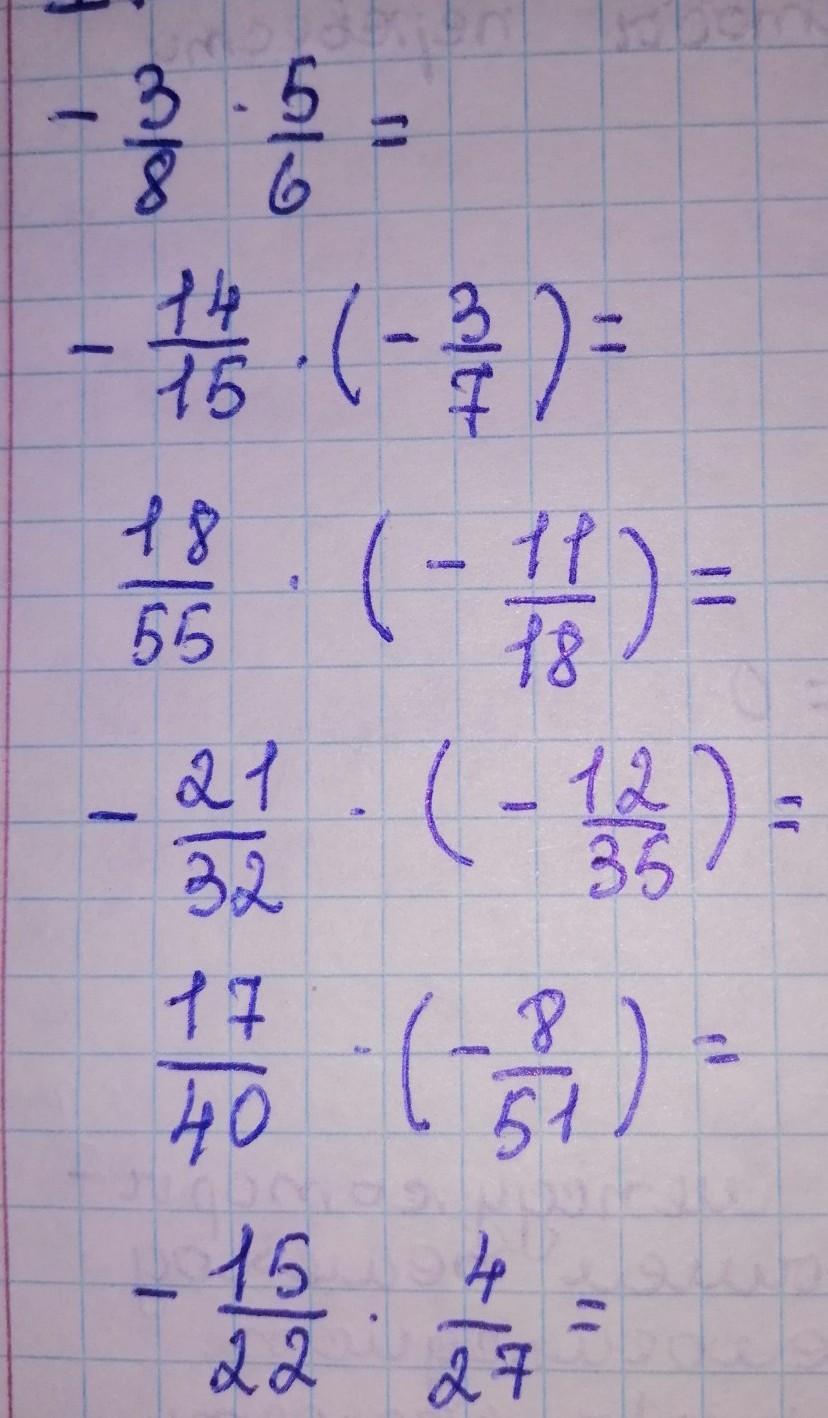 - 3/8 · 5/6 =
- 14/15 · (- 3/7) =
18/55 · (- 11/18) =
- 21/32 · (- 12/35) =
17/40 · (- 8/51) =
- 15/22 · 4/27 =